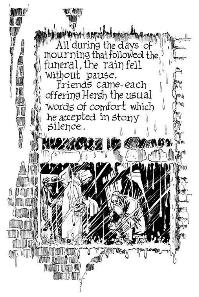 All during the days of
mourning that followed the
funeral, the rain fell
without pause.
Friends came-each
offering Hersh the usual
words of comfort which
he accepted in stony
silence.